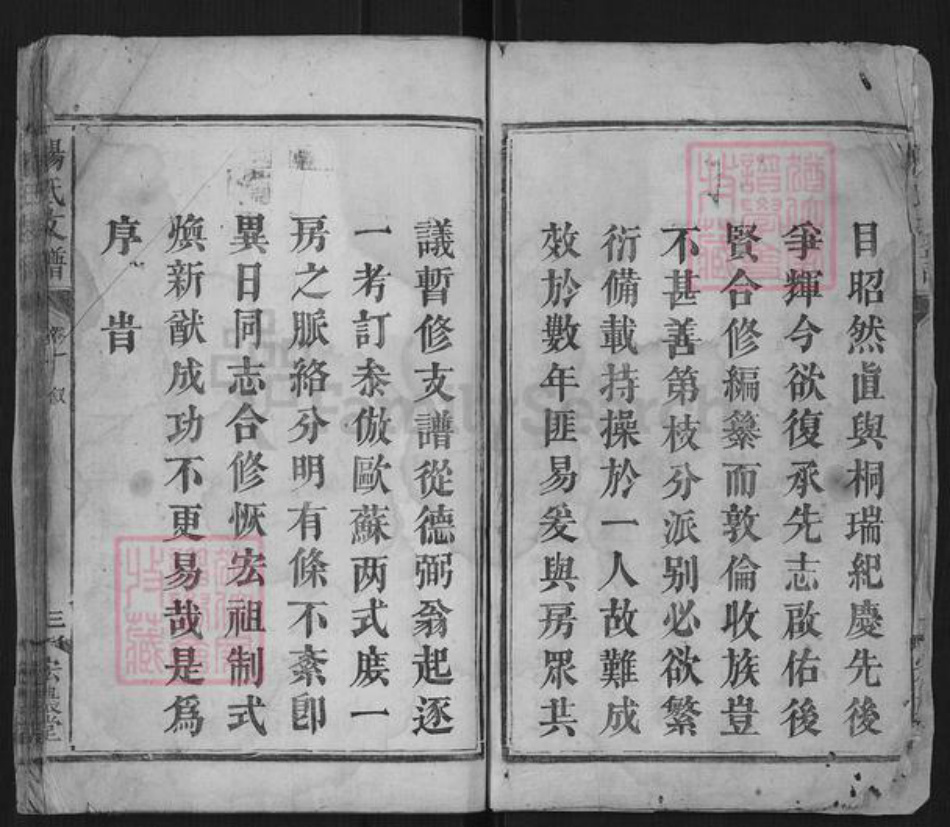 目昭然直與桐瑞紀慶先後
爭輝今欲復承先志啟佑後
賢合修編纂而敦倫收族豈
不甚善第枝分派别必欲繁
衍備載持操於一人故難成
效於數年匪易爰與房眾共
議暫修支譜從德弼翁起逐
一考訂叅倣歐蘇两式庻一
房之脈絡分明有條不紊即
異日同志合修恢宏祖制式
煥新猷成功不更易哉是為
序旹
楊氏支譜
三
FamilySearch